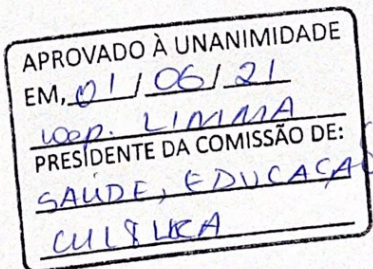 APROVADO À UNANIMIDADE
EM, 01/06/21
LIMMA
PRESIDENTE DA COMISSÃO DE:
SAUDE, EDUCAÇAO
CULTURA